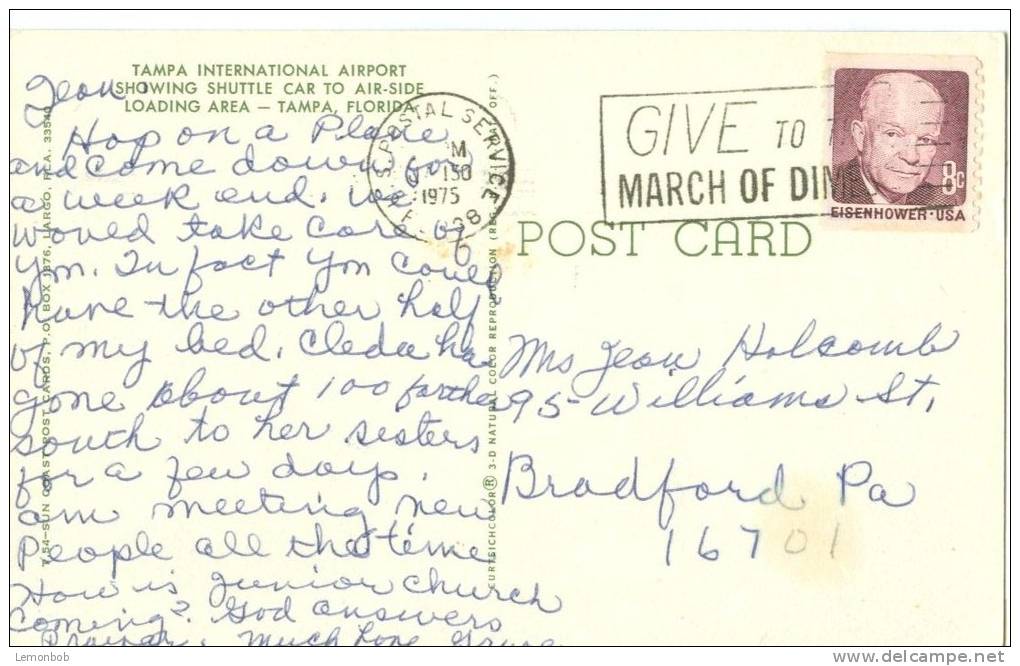 TAMPA INTERNATIONAL AIRPORT
SHOWING SHUTTLE CAR TO AIR-SIDE
LOADING AREA — TAMPA, FLORIDA
Jean:
Hop on a Plane
and come down for
a week end. We
would take care of
you. In fact you could
have the other half
of my bed. Cleda has
gone about 100 farther
south to her sisters
for a few days.
am meeting new
People all the time
How is Junior Church
Coming? God answers
Much Love
7-54—SUN COAST POST CARDS, P.O. BOX 1876, LARGO, FLA. 33540
CURTEICHCOLOR® 3-D NATURAL COLOR REPRODUCTION (REG. U.S.A. PAT. OFF.)
U.S. POSTAL SERVICE
1975
GIVE TO
MARCH OF DIMES
8c
EISENHOWER·USA
POST CARD
Ms Jean Holcomb
95 Williams St,
Bradford Pa
16701
Lemonbob
www.delcampe.net